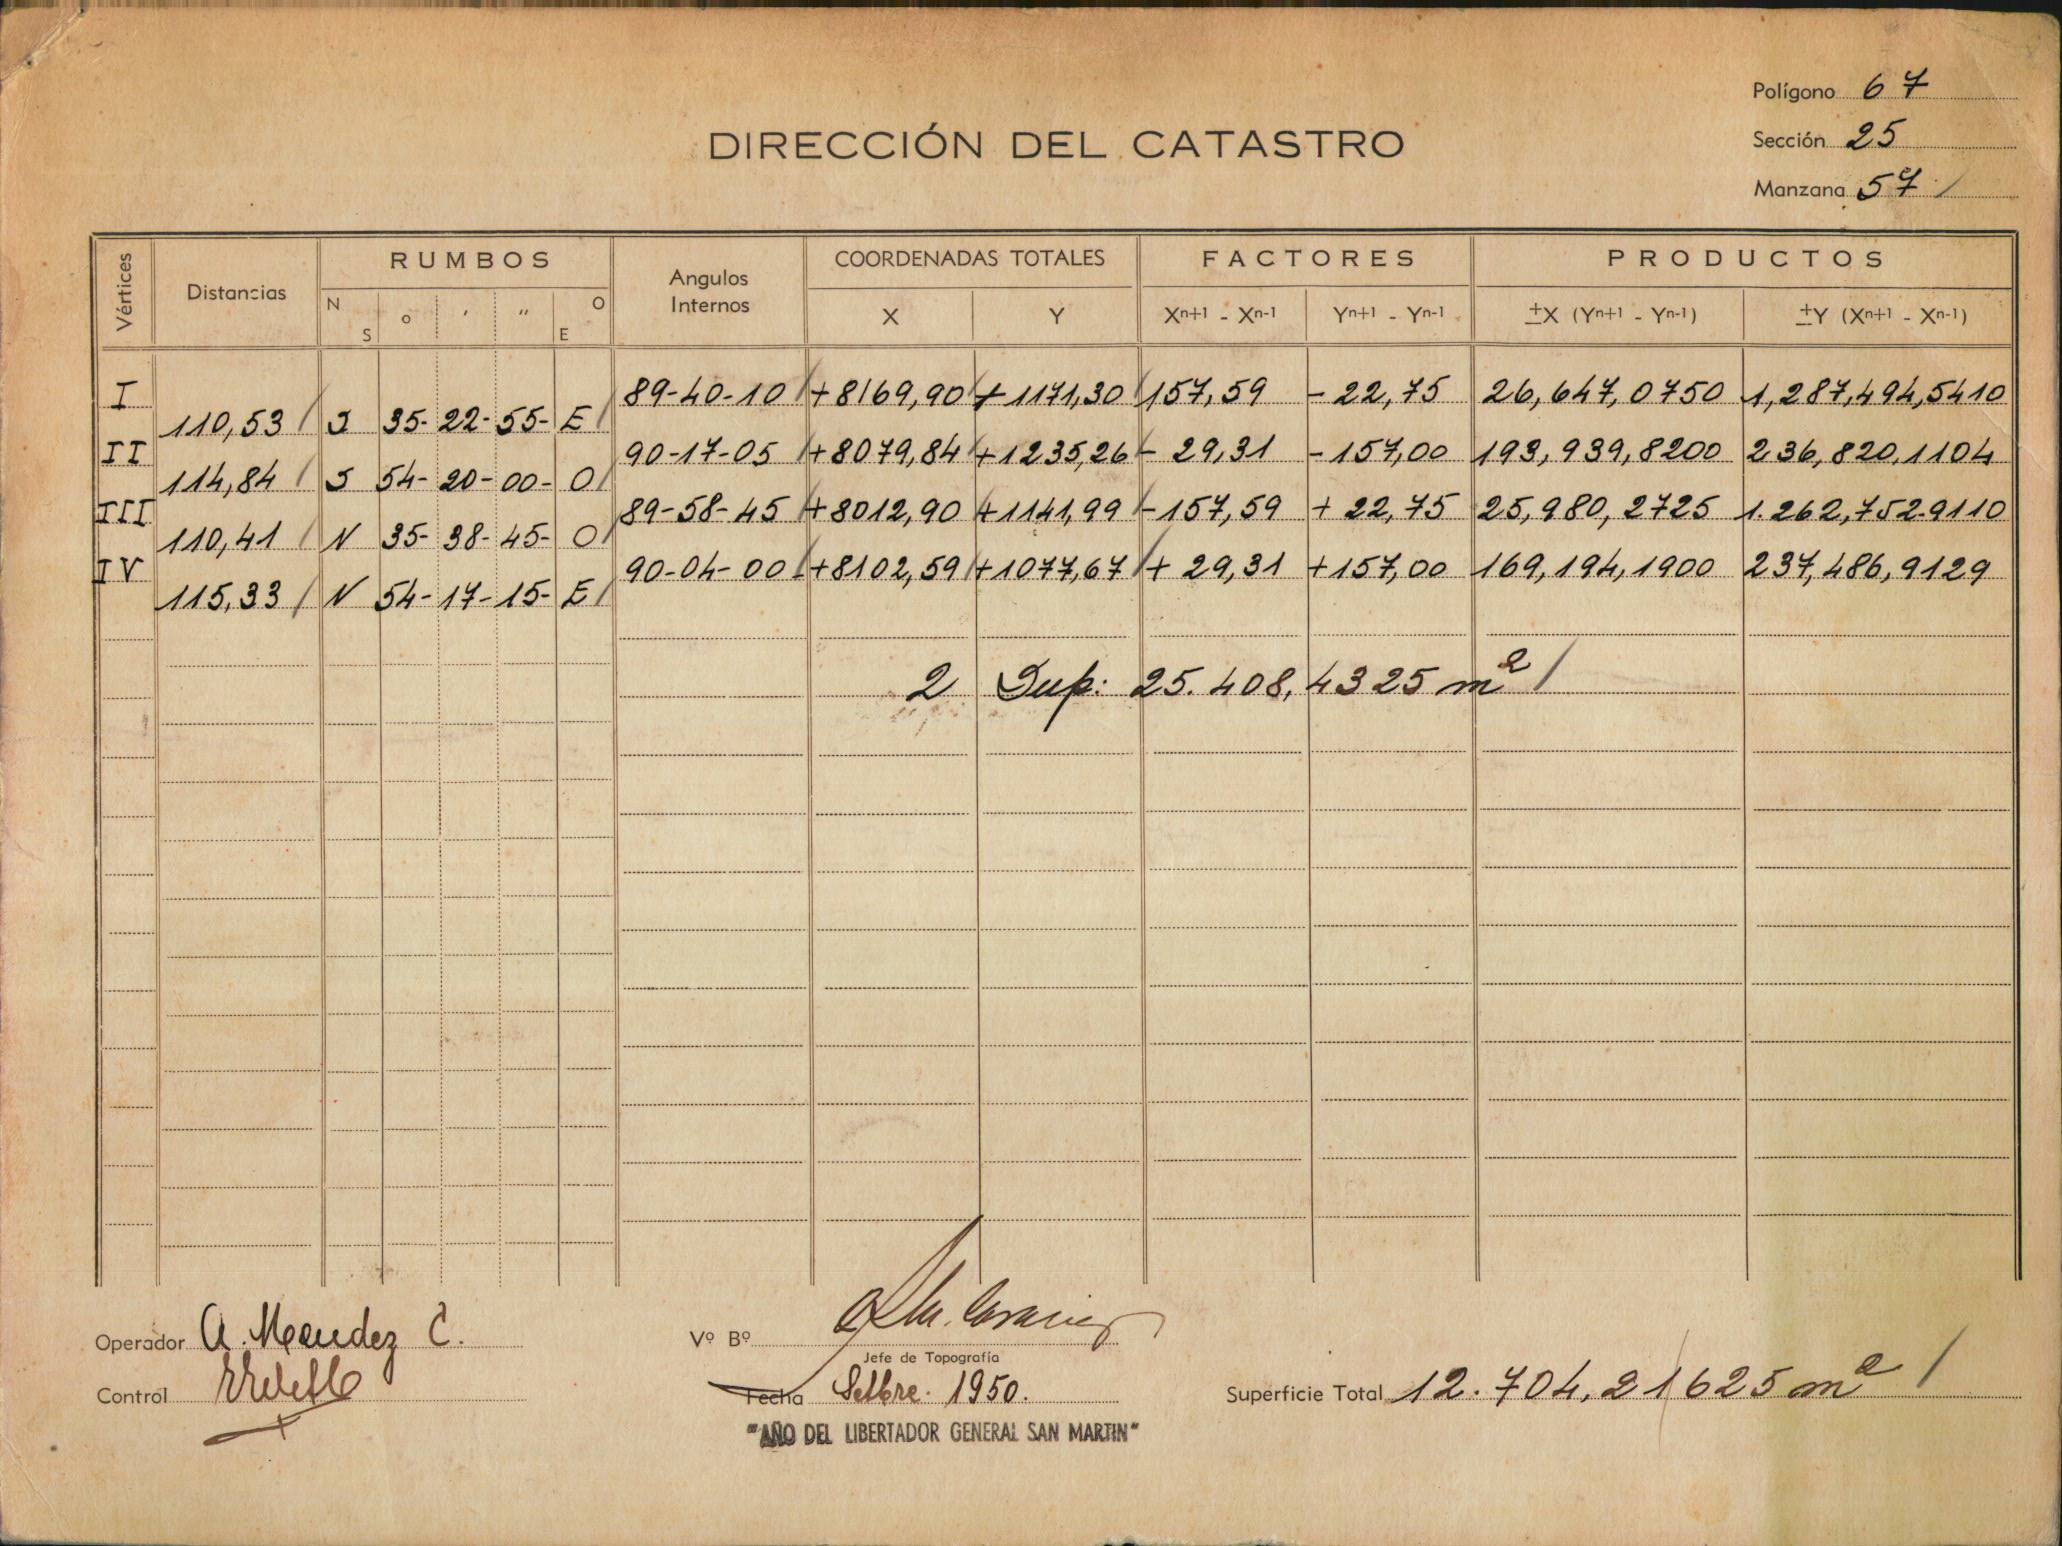 Polígono 67
DIRECCIÓN DEL CATASTRO
Sección 25
Manzana 57
Vértices Distancias RUMBOS Angulos Internos COORDENADAS TOTALES FACTORES PRODUCTOS
N S o ' " O E X Y Xn+1 - Xn-1 Yn+1 - Yn-1 ±X (Yn+1 - Yn-1) ±Y (Xn+1 - Xn-1)
I 89-40-10 +8169,90 +1171,30 157,59 -22,75 26,647,0750 1,287,494,5410
110,53 S 35-22-55- E
II 90-17-05 +8079,84 +1235,26 - 29,31 -157,00 193,939,8200 236,820,1104
114,84 S 54-20-00- O
III 89-58-45 +8012,90 +1141,99 -157,59 + 22,75 25,980,2725 1.262,752.9110
110,41 N 35-38-45- O
IV 90-04-00 +8102,59 +1077,67 + 29,31 +157,00 169,194,1900 237,486,9129
115,33 N 54-17-15- E
2 Sup: 25.408,4325 m²
Operador A. Mendez C.
Vº Bº
Jefe de Topografía
Control
Fecha Setbre. 1950.
Superficie Total 12.704,21625 m²
"AÑO DEL LIBERTADOR GENERAL SAN MARTIN"